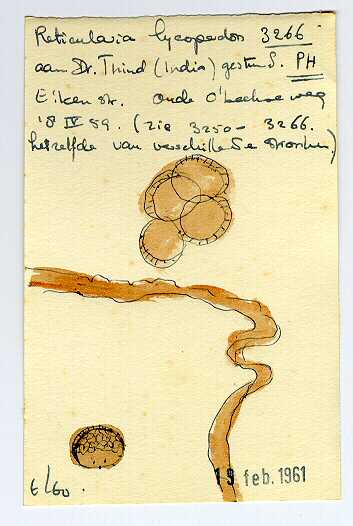 Reticularia lycoperdon 3266
aan Dr. Thind (India) gestuurd. PH
Eiken str. Oude weg
18 IV 59. (zie 3250 - 3266.
hetzelfde van verschillende stronken)
6/60.
19 feb. 1961